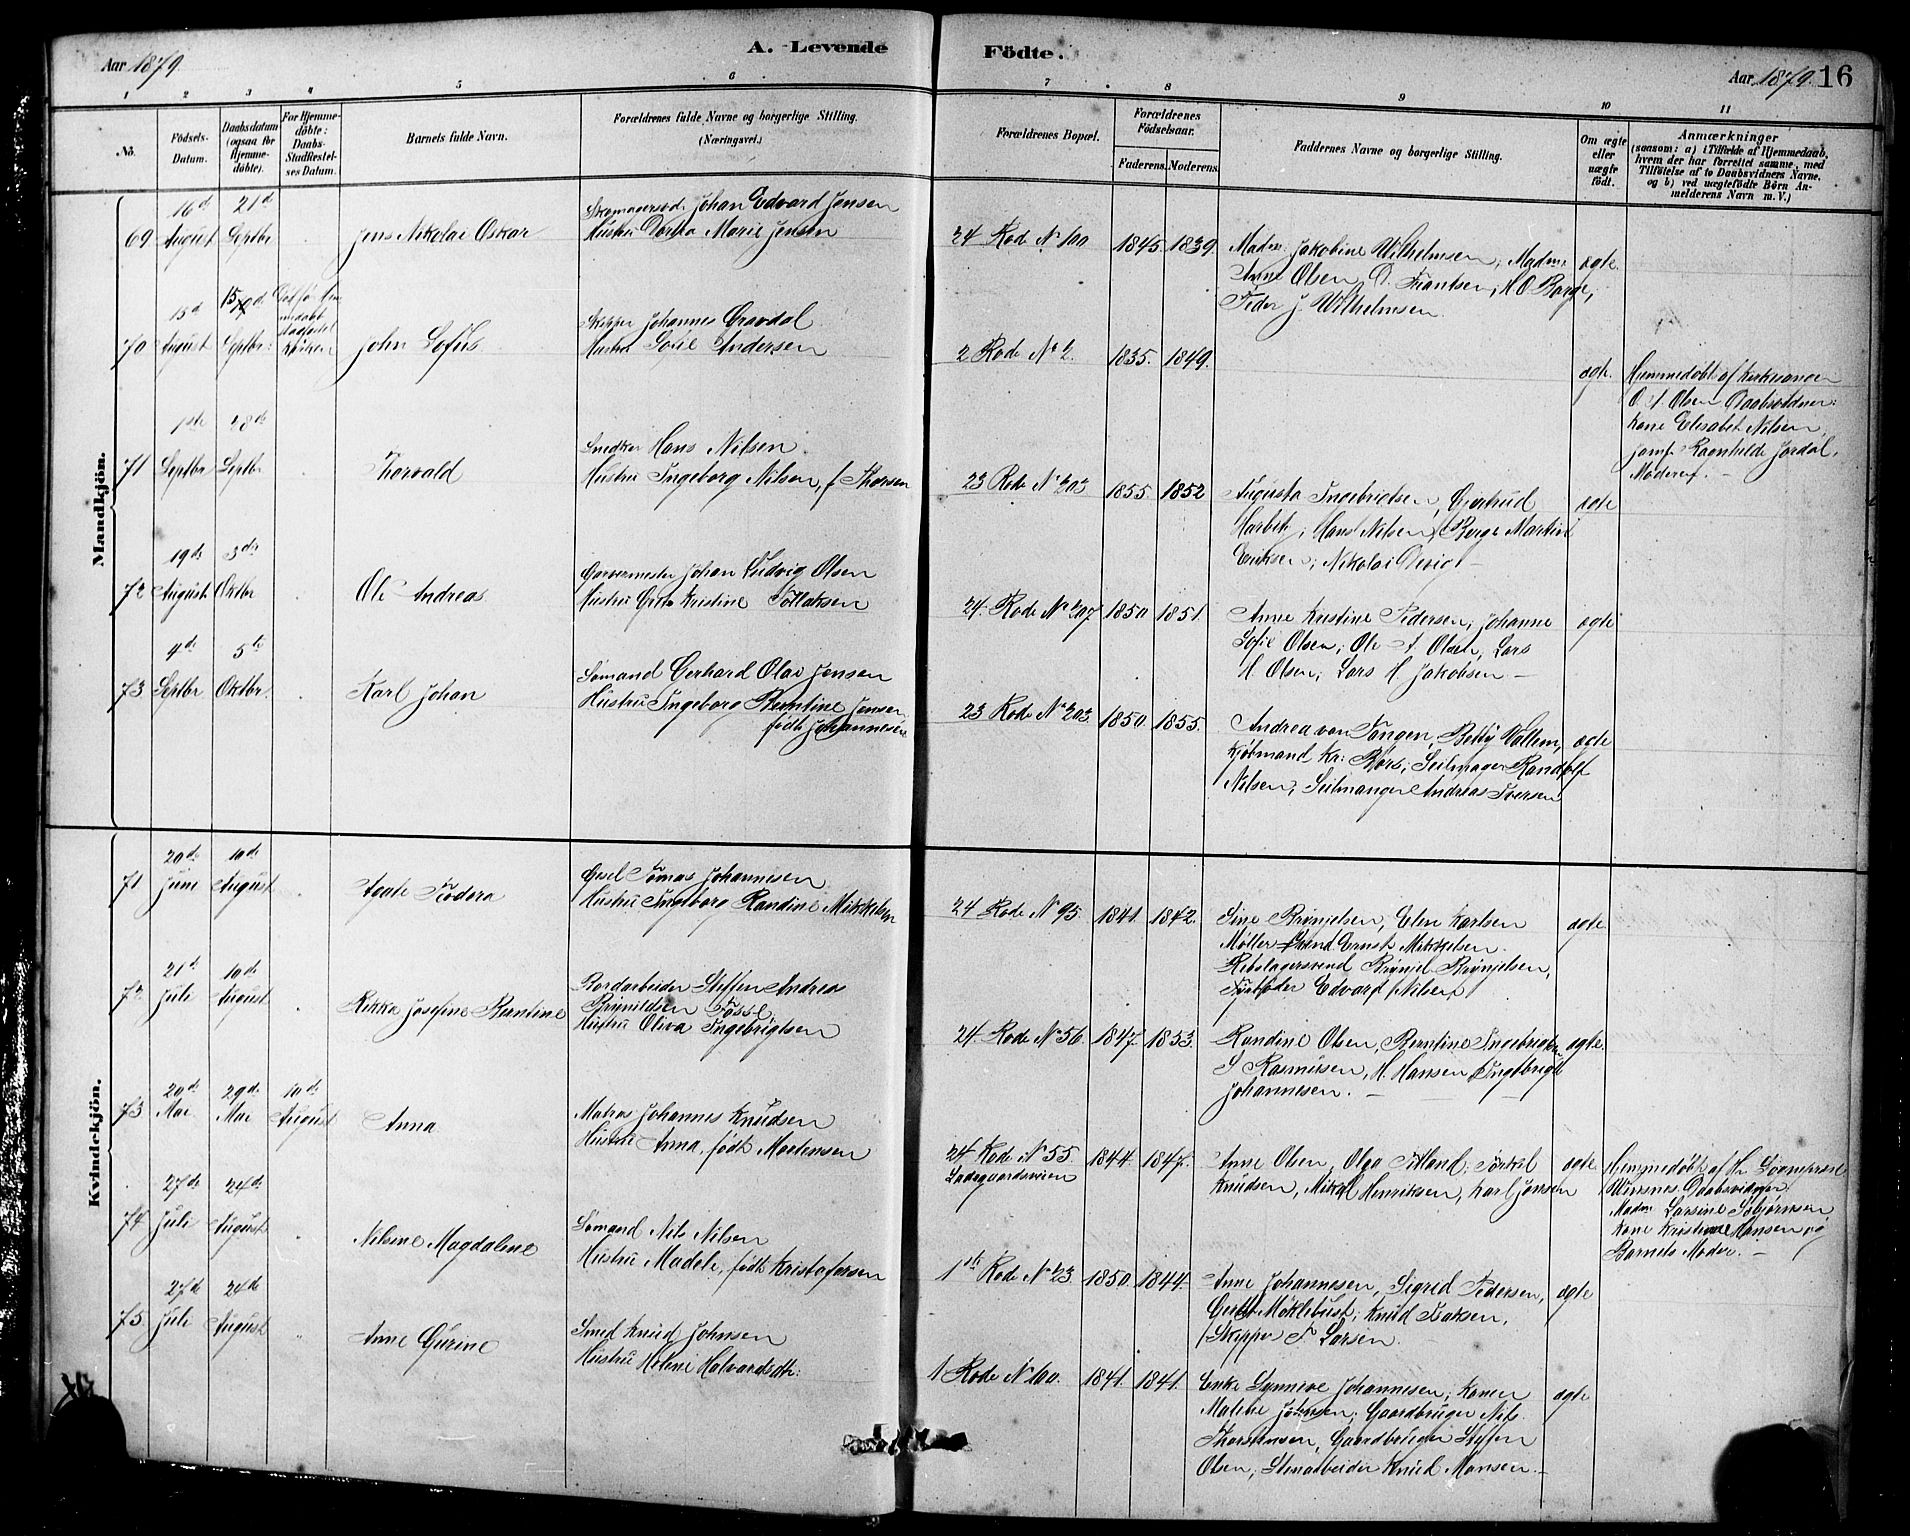 Aar 1879.
A. Levende Födte.
Aar 1879. 16
1 2 3 4 5 6 7 8 9 10 11
No.
Födsels-Datum.
Daabsdatum (ogsaa for Hjemmedöbte).
For Hjemmedöbte: Daabs-Stadfæstelses Datum.
Barnets fulde Navn.
Forældrenes fulde Navne og borgerlige Stilling.
(Næringsvei.)
Forældrenes Bopæl.
Forældrenes Födselsaar.
Faderens. Moderens.
Faddernes Navne og borgerlige Stilling.
Om ægte eller uægte födt.
Anmærkninger
(saasom: a) i Tilfælde af Hjemmedaab, hvem der har forrettet samme, med Tilföielse af to Daabsvidners Navne, og b) ved uægtefödte Börn Anmelderens Navn m. V.)
Mandkjön.
69 16de August 21de Septbr Jens Nikolai Oskar
Skomagersvd. Johan Edvard Jensen
Hustru Dorthea Marie Jensen
24 Rode No 100 1845. 1839.
Madm. Jakobine Wilhelmsen, Madm.
Anne Olsen, O. Frantsen, H O Borge,
Peder J. Wilhelmsen.
ægte.
70 15de August 15de Septbr. John Lofus
Skipper Johannes Gravdal
Hustru Sofie Andersen
2 Rode No 2. 1835. 1849.
ægte.
Hjemmedøbt af Kirkesanger
O. S. Olsen Daabsvidner:
Kone Elisabet Nilsen,
Jomf. Ragnhilde Jordal,
Moderen. -
71 1ste Septbr 28de Septbr Torvald
Snedker Hans Nilsen
Hustru Ingeborg Nilsen, f Thorsen
23 Rode No 203 1855. 1852
Augusta Ingebrigtsen, Gjertrud
Harbek, Hans Nilsen, Børge Martin
Eriksen, Nikolai
ægte
72 19de August 3die Oktbr Ole Andreas
Garvermester Johan Ludvig Olsen
Hustru Grete Kristine Tollaksen
24. Rode No 207 1850 1851.
Anne Kristine Pedersen, Johanne
Sofie Olsen, Ole A. Olsen, Lars
H Olsen, Lars H Jakobsen -
ægte
73 4de Septbr 5te Oktbr. Karl Johan
Sømand Gerhard Olai Jensen
Hustru Ingeborg Berntine Jensen
født Johannesen
23 Rode No 203. 1850. 1855.
Andrea von Tangen, Betty Vallem,
Kjøbmand Kr: Børs, Seilmager Randolf
Nilsen, Seilmanger Andreas Iversen
ægte
Kvindekjön.
71 20de Juni 10de August Agate Teodora
Gesel Tomas Johannesen
Hustru Ingeborg Randine Mikkelsen
24 Rode No 95. 1841. 1842.
Sine Brynjelsen, Elen Karlsen
Møller Svend Ernst Mikkelsen
Rebslagersvend Brynjel Brynjelsen,
Edvard Nilsen
ægte
72 21de Juli 10de August Rikka Josefine Berntine
Jordarbeider Steffen Andreas
Brynildsen Fosse
Hustru Oliva Ingebrigtsen
24. Rode No 56. 1847. 1853.
Randine Olsen, Berntine Ingebrigtsen
S Rasmussen, H. Hansen Ingebrigt
Johannesen. -
ægte.
73 20de Mai 29de Mai 10de August Anna
Matros Johannes Knudsen
Hustru Anna, født Mortensen
24 Rode No 55. 1844. 1847.
Ladegaardsveien
Anne Olsen, Olga Titland, Torkel
Knudsen, Mikal Henriksen, Karl Jansen
ægte
Hjemmedøbt af Hr Sognepræst
Daabsvidner
Madm Larsine
Kone Kristine Hansen og
Barnets Moder. -
74 27de Juli 24de August Nilsine Magdalene
Sømand Nils Nilsen
Hustru Madele, født Kristofersen
1ste Rode No 23. 1850. 1844.
Anne Johannesen, Sigrid Pedersen,
Gerth Møklebust, Knud Isaksen,
Skipper T. Larsen.
ægte
75. 27de Juli 24de August Anne Gurine
Smed Knud Johnsen
Hustru Heline Halvardsdtr:
1 Rode No 100. 1841. 1841.
Enke Synneve Johannesen, Konen
Malene Johnsen, Gaardbruger Nils
Thorstensen, Gaardbruger Steffen
Olsen, Stenarbeider Knud Monsen. -
ægte